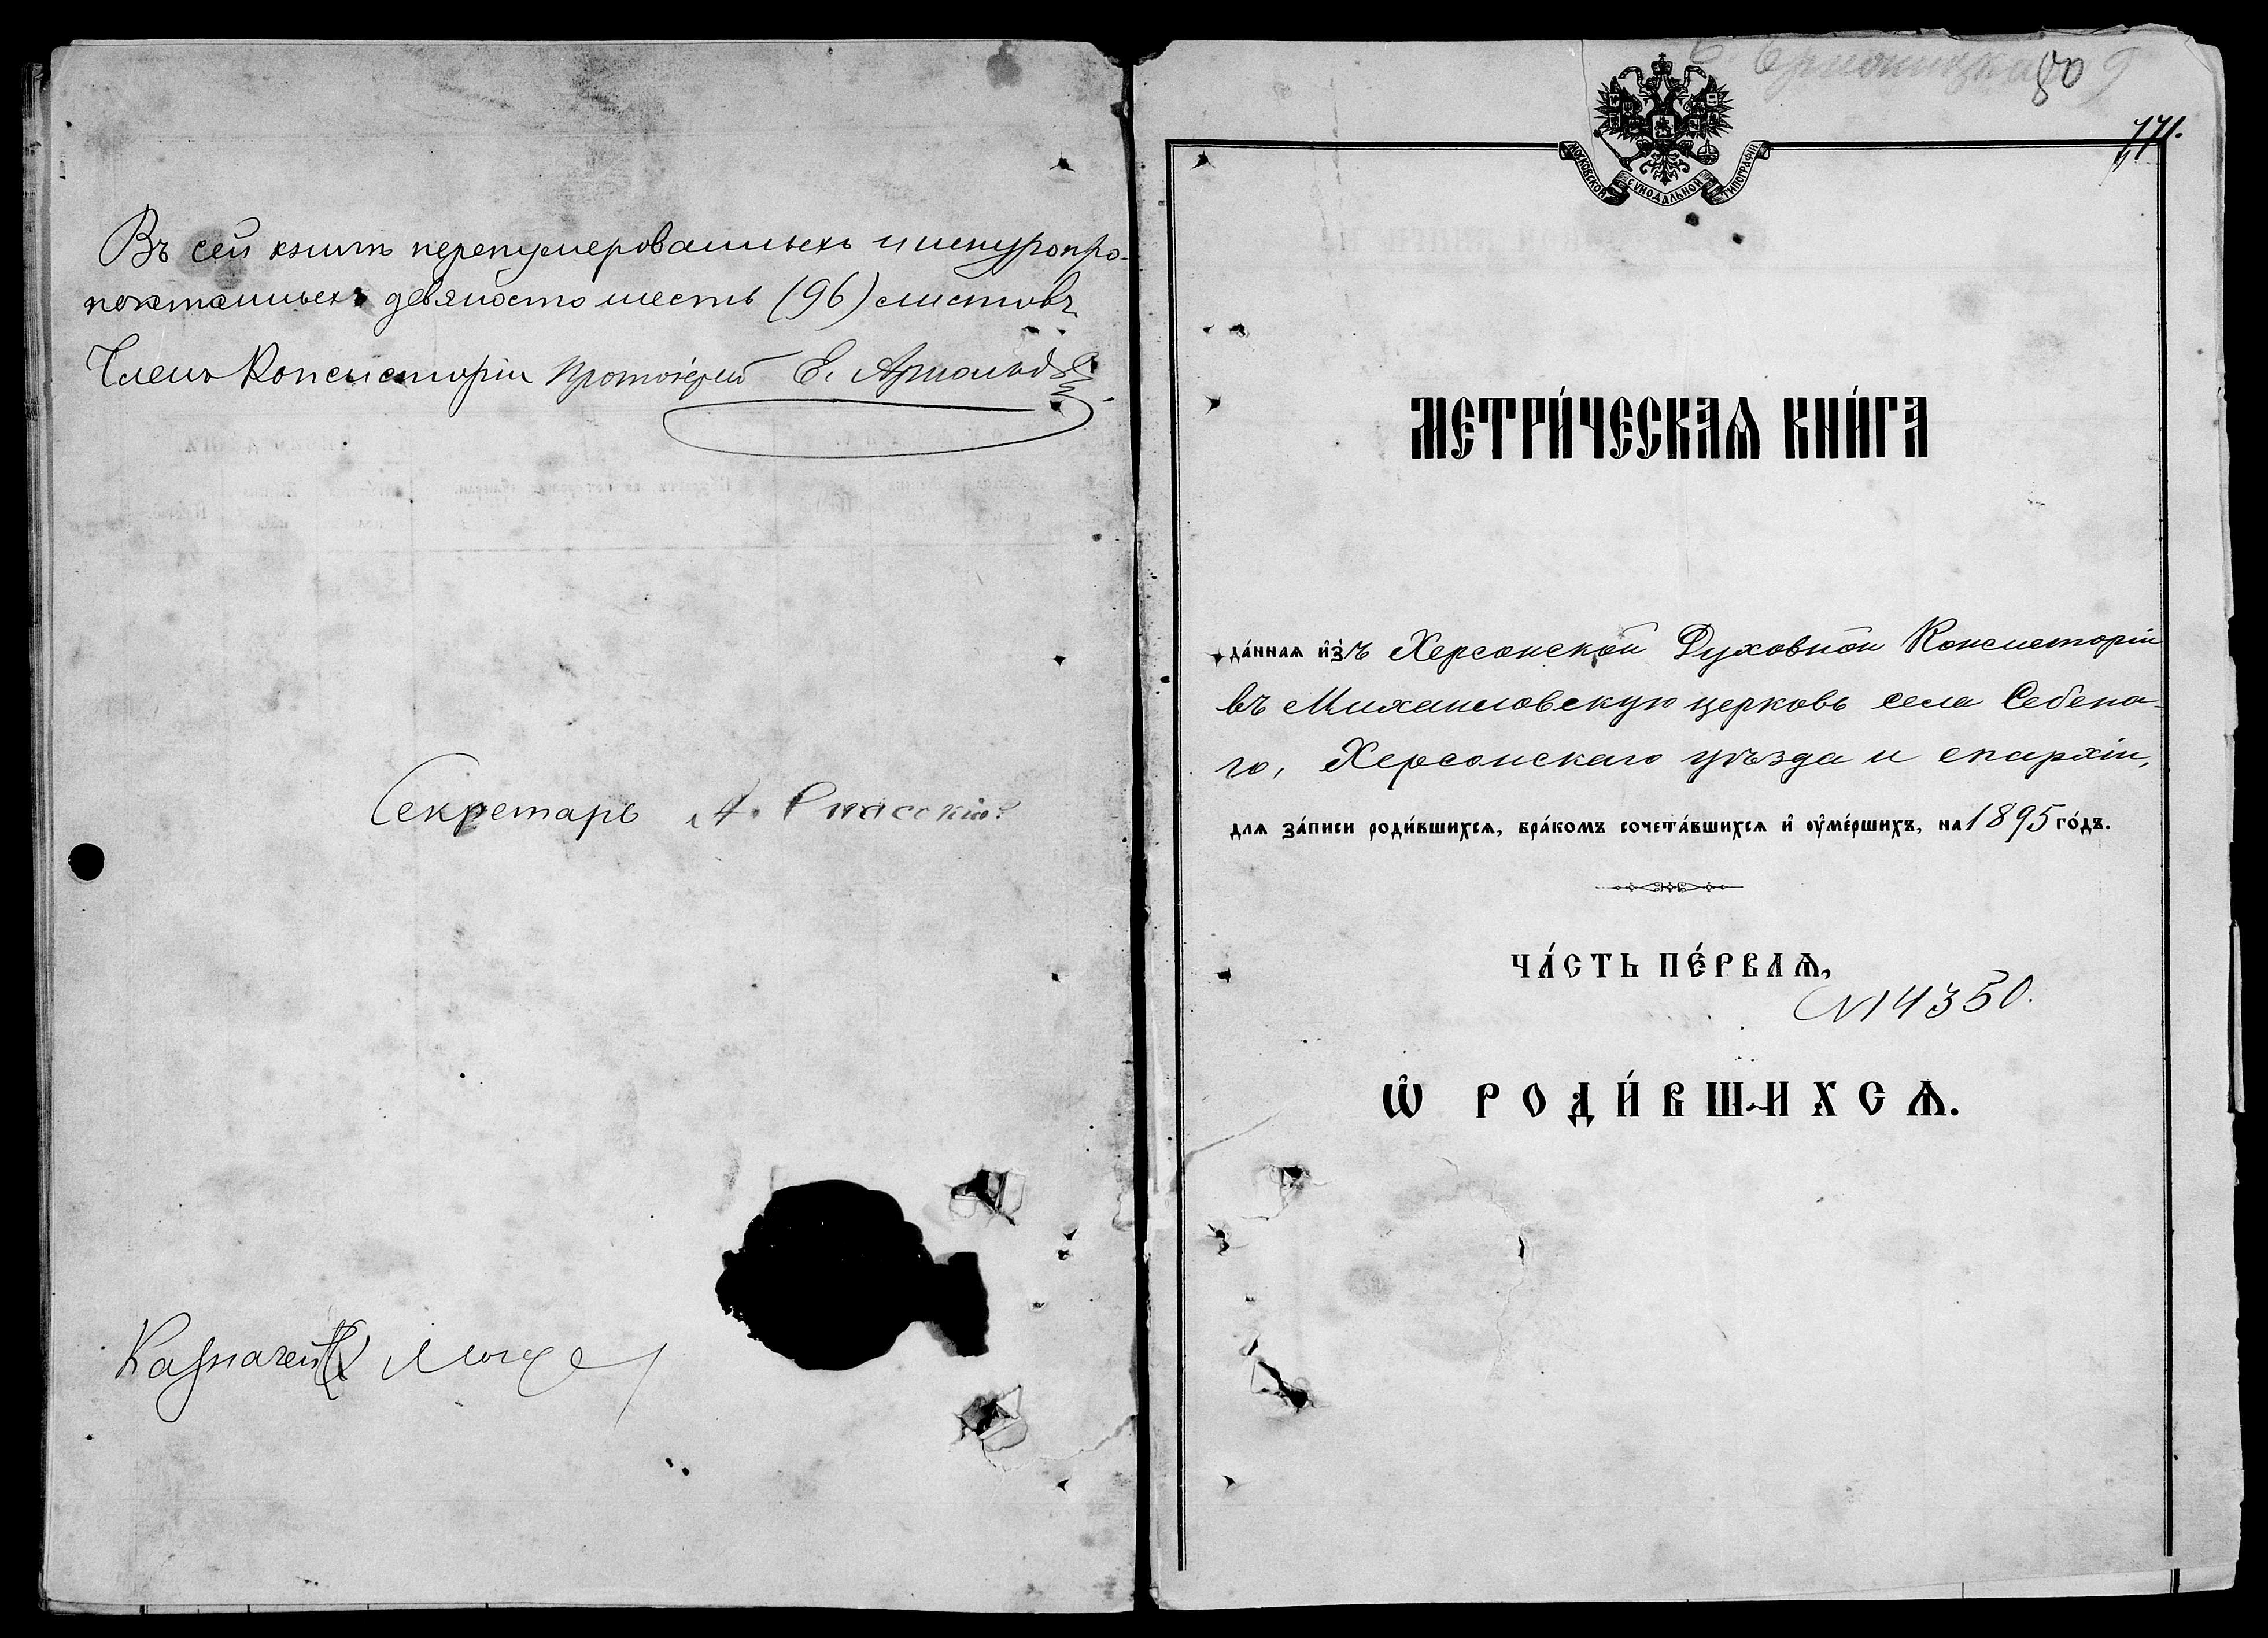 Въ сей книгѣ перенумерованныхъ и шнуропро-
початанныхъ девяносто шесть (96) листовъ
Членъ Консисторіи Протоіерей Е. Арнольдъ
Секретарь А. Спасскій
Казначей
809
771.
МОСКОВСКОЙ СѴНОДАЛЬНОЙ ТИПОГРАФІИ
МЕТРИ́ЧЕСКАѦ КНИ́ГА
да́ннаѧ и҆зъ Херсонской Духовной Консисторіи
въ Михаиловскую церковь села Себена-
го, Херсонскаго уѣзда и епархіи,
длѧ за́писи роди́вшихсѧ, бра́комъ сочета́вшихсѧ и҆ ѹ҆ме́ршихъ, на 1895 го́дъ.
ЧА́СТЬ ПЕ́РВАѦ,
№ 14350.
Ѽ РОДИ́ВШИХСѦ.